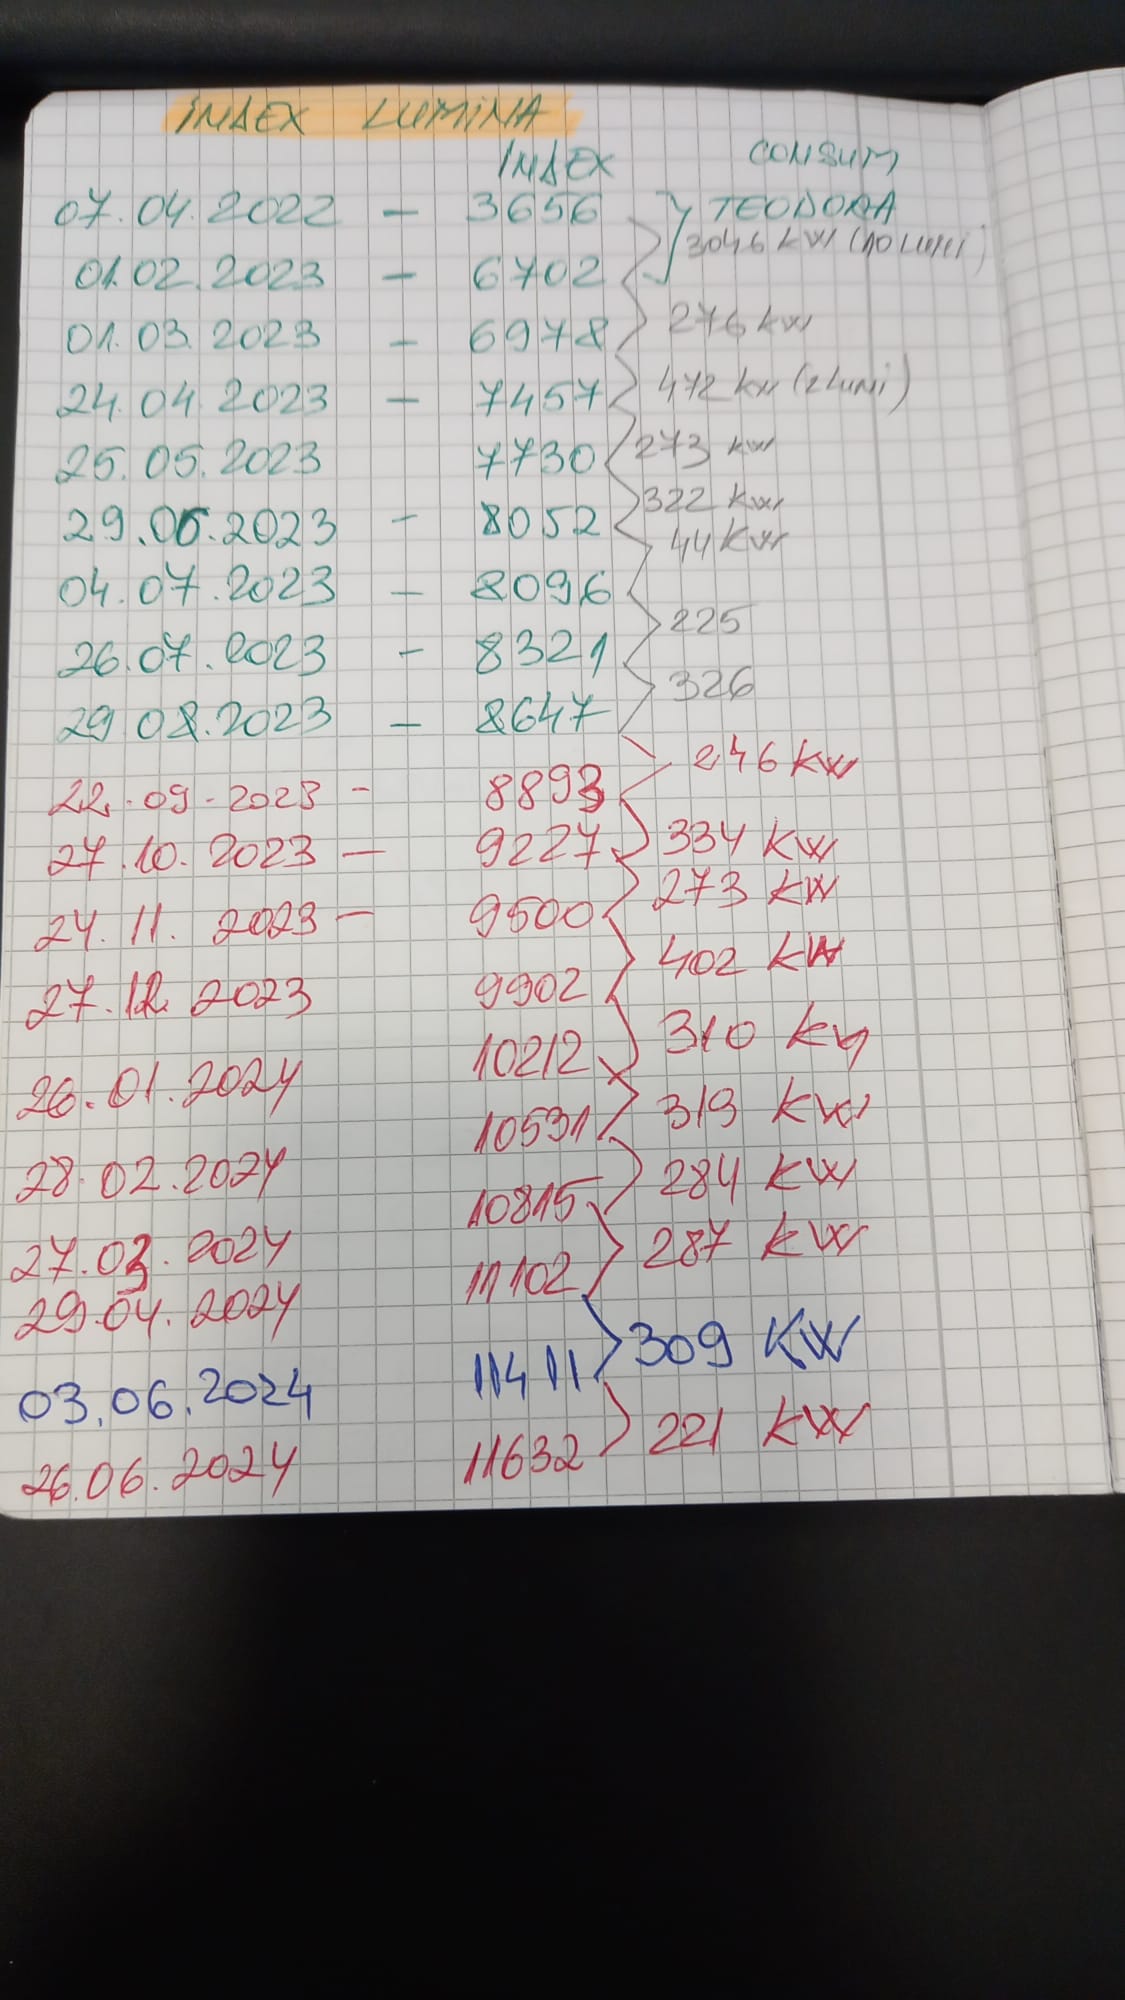 INDEX LUMINA
INDEX CONSUM
07.04.2022 - 3656 TEODORA
3046 KW (10 LUNI)
01.02.2023 - 6702
01.03.2023 - 6978 276 KW
24.04.2023 - 7457 472 KW (2 LUNI)
25.05.2023 7730 273 KW
29.06.2023 - 8052 322 KW
44 KW
04.07.2023 - 8096
26.07.2023 - 8321 225
29.08.2023 - 8647 326
22.09.2023 - 8893 246 KW
27.10.2023 - 9227 334 KW
24.11.2023 - 9500 273 KW
27.12.2023 9902 402 KW
26.01.2024 10212 310 KW
28.02.2024 10531 319 KW
27.03.2024 10815 284 KW
29.04.2024 11102 287 KW
03.06.2024 11411 309 KW
26.06.2024 11632 221 KW